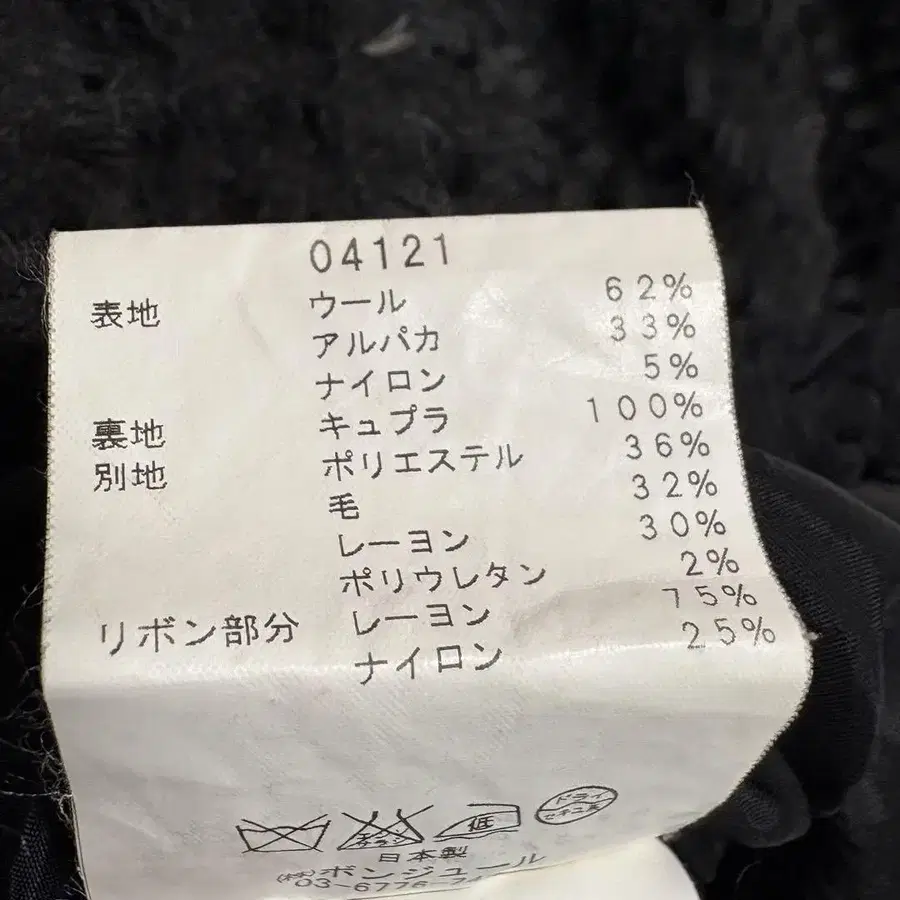 04121
表地 ウール 62%
アルパカ 33%
ナイロン 5%
裏地 キュプラ 100%
別地 ポリエステル 36%
毛 32%
レーヨン 30%
ポリウレタン 2%
リボン部分 レーヨン 75%
ナイロン 25%
低 ドライ
日本製
㈱ボンジュール
03-6776-